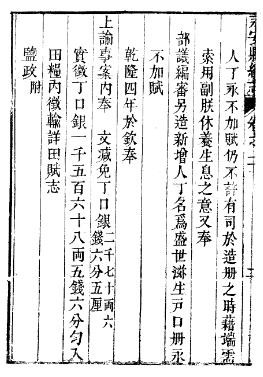 人丁永不加賦仍不許有司於造册之時藉端需
索用副朕休養生息之意又奉
部議編審另造新增人丁名爲盛世滋生戸口册永
不加賦
乾隆四年於欽奉
上諭事案内奉文减免丁口銀二千七十両六
錢六分五厘
實徵丁口銀一千五百六十八両五錢六分勻入
田糧内徵輸詳田賦志
鹽政附